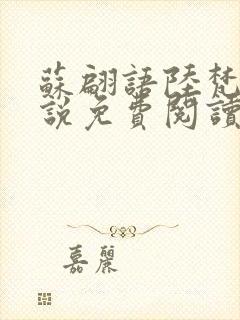 蘇翩語陸梵
說免費閱讀
嘉麗